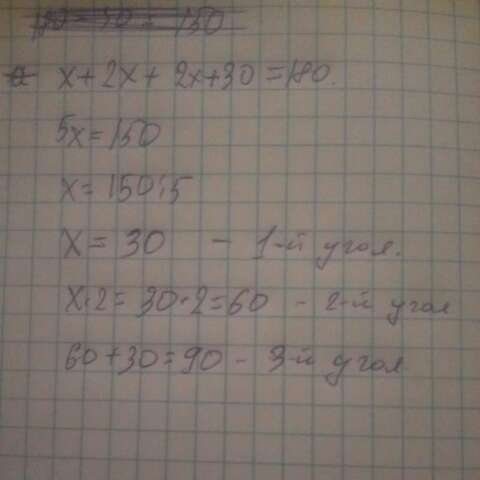 x+2x+2x+30=180.
5x=150
x=150:5
x=30 - 1-й угол.
x·2=30·2=60 - 2-й угол
60+30=90 - 3-й угол.